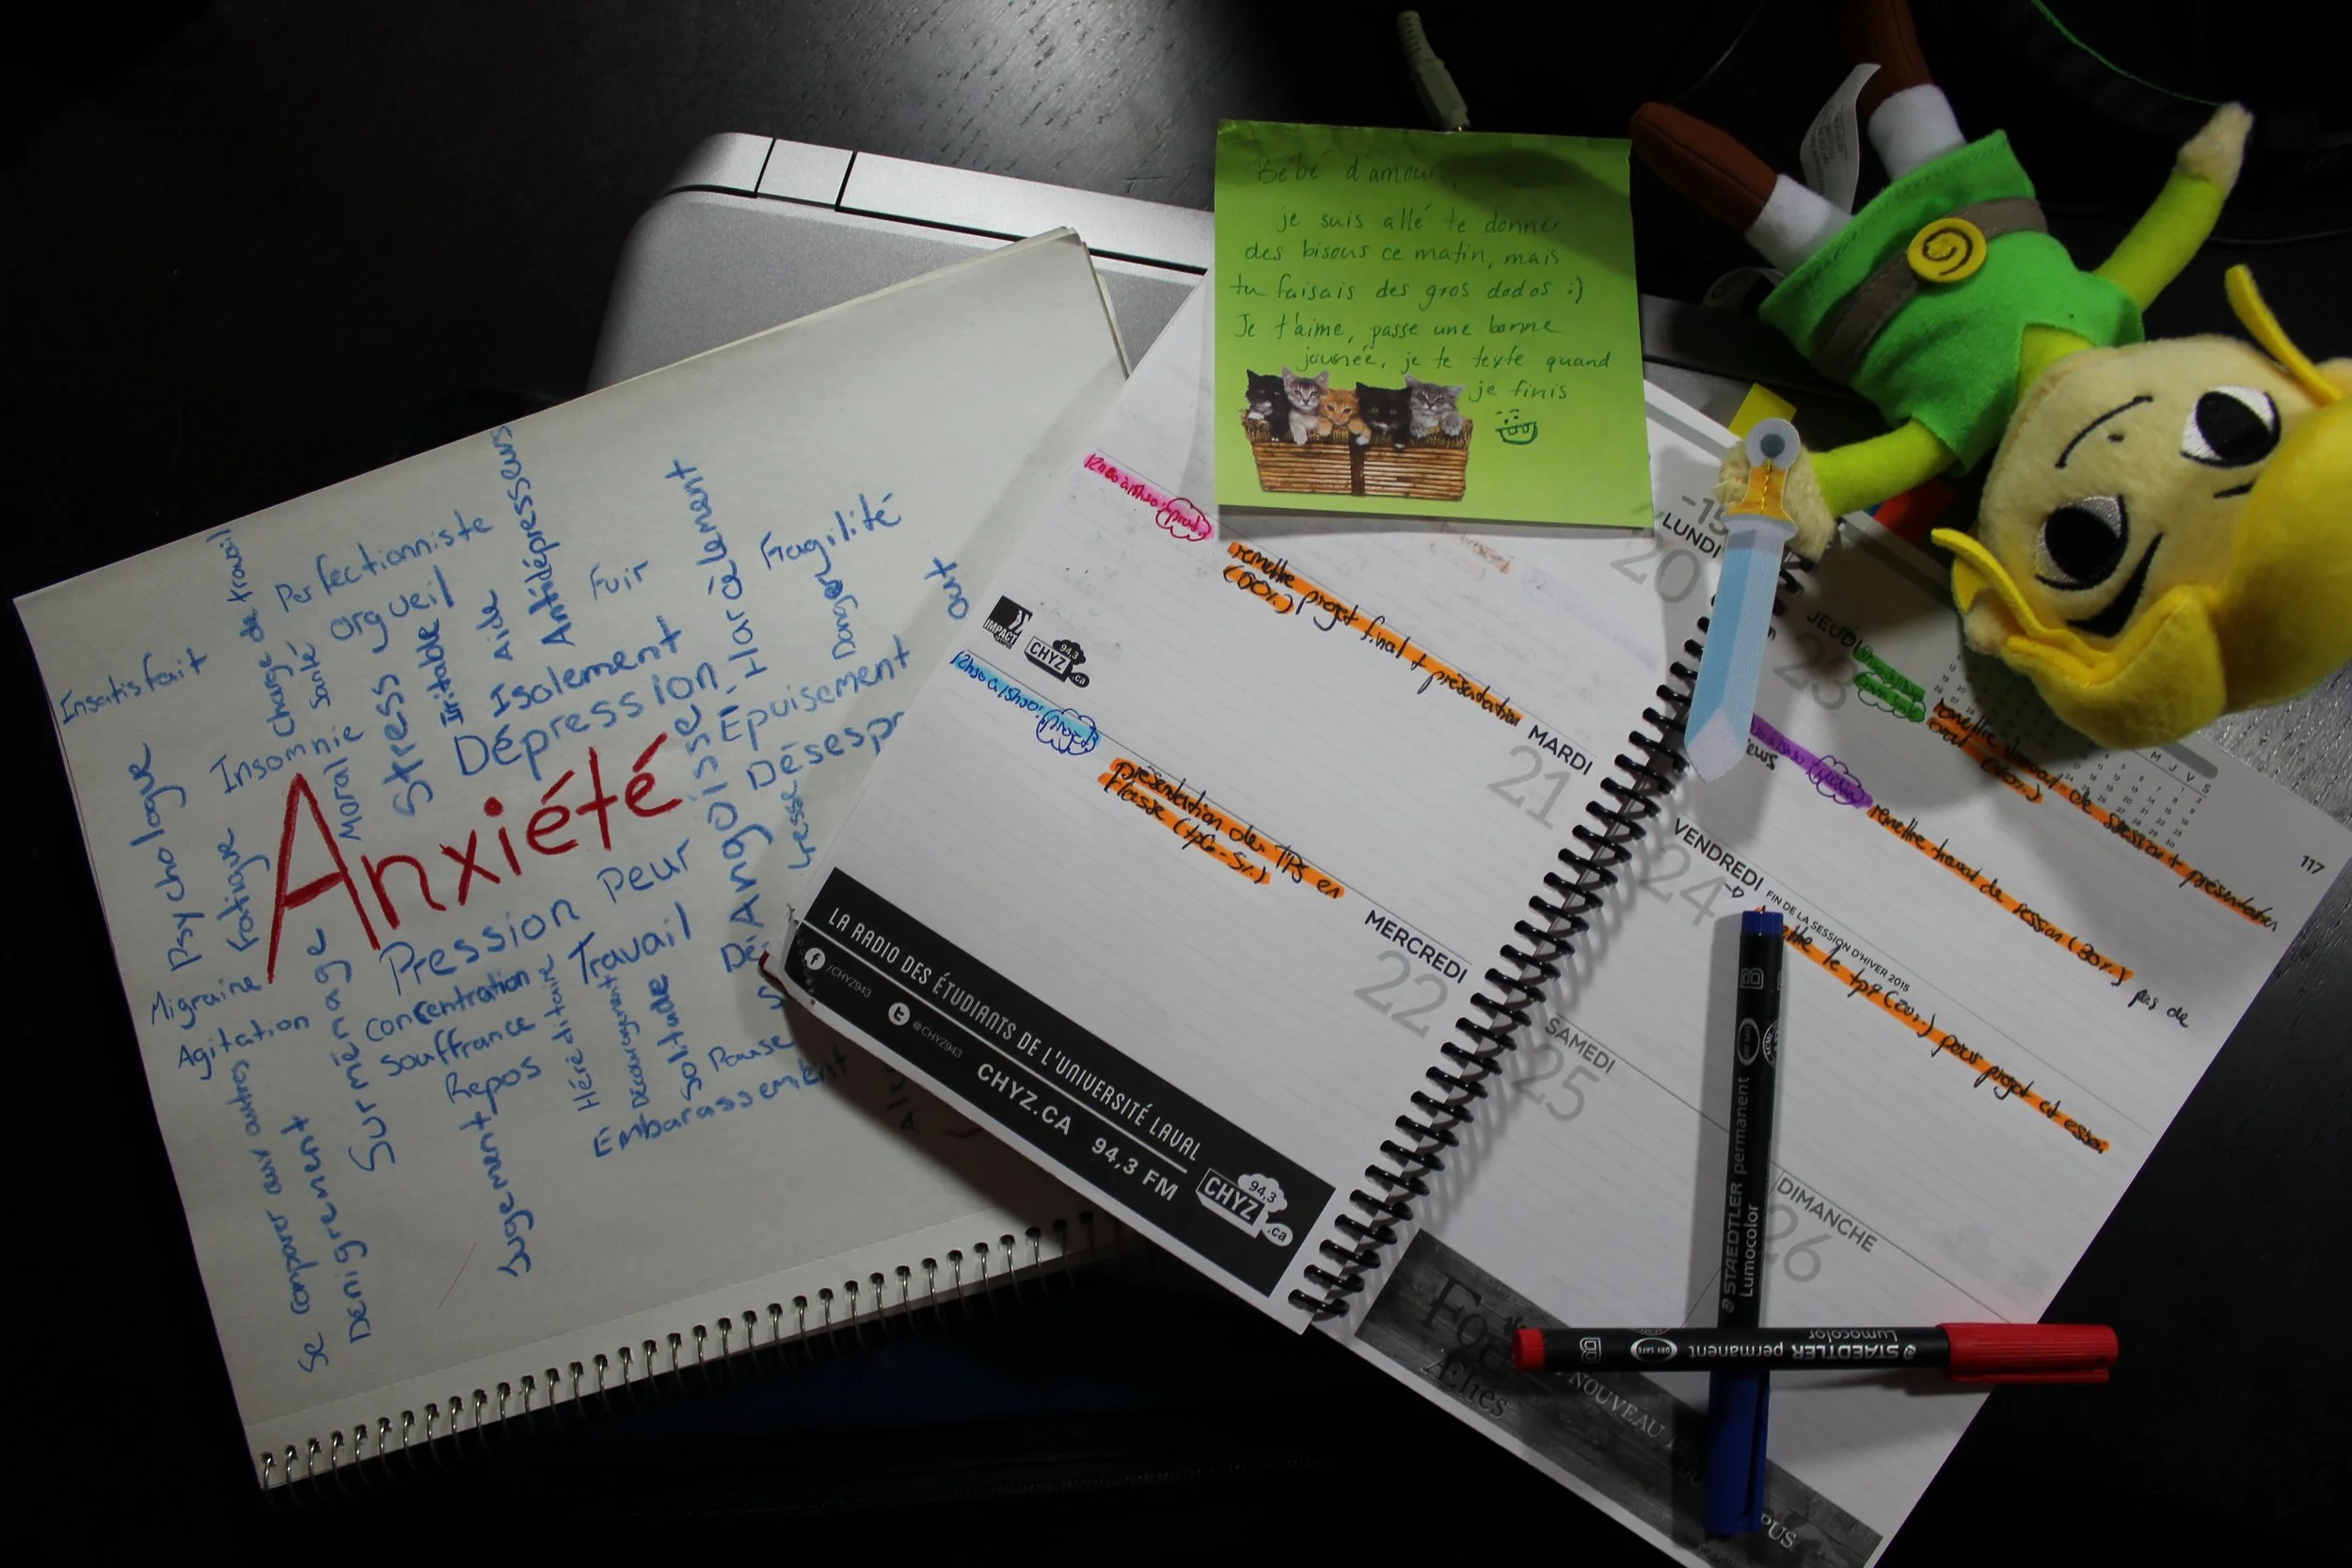 Anxiété
Insatisfait
Psychologue
Migraine
Agitation
Fatigue
Insomnie
charge de travail
santé
Moral
Perfectionniste
orgueil
Stress
Irritable
Aide
Antidépresseurs
Fuir
Isolement
Dépression
Harcèlement
Fragilité
Danger
Epuisement
Désespr
Angoisse
Peur
Pression
Travail
Concentration
Souffrance
Repos
Surménage
Héréditaire
Découragement
Solitude
Pause
Embarassement
Jugement
Dénigrement
Se comparer aux autres
Bébé d'amour,
je suis allé te donner
des bisous ce matin, mais
tu faisais des gros dodos :)
Je t'aime, passe une bonne
journée, je te texte quand
je finis
LUNDI
20
remettre projet final + présentation
MARDI
21
IMPACT
CHYZ 94,3 .ca
présentation des TPs en
classe
MERCREDI
22
LA RADIO DES ÉTUDIANTS DE L'UNIVERSITÉ LAVAL
/CHYZ943
@CHYZ943
CHYZ.CA 94,3 FM
CHYZ 94,3 .ca
JEUDI
23
remettre travail de session + présentation
VENDREDI
24
FIN DE LA SESSION D'HIVER 2015
remettre travail de session (30%) pas de
le tp7 (20%) pour projet et
117
SAMEDI
25
DIMANCHE
26
NOUVEAU
STAEDTLER permanent
Lumocolor
B
STAEDTLER permanent
Lumocolor
B
DRY SAFE